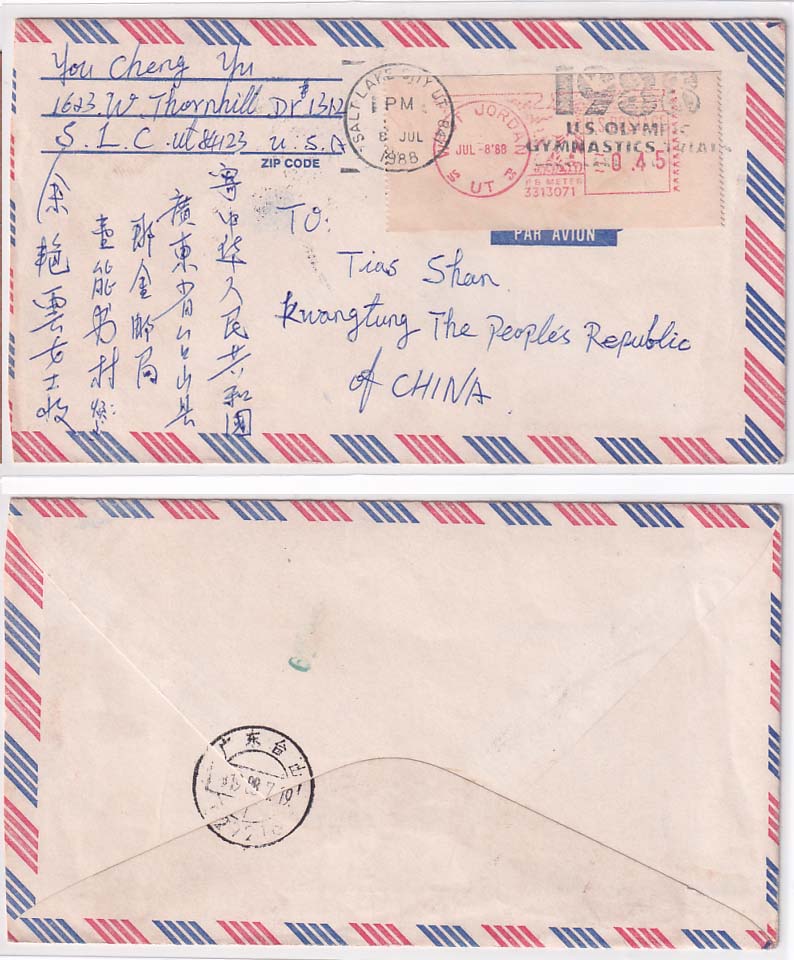 You Cheng Yu
1623 W. Thornhill Dr # 1312
S. L. C. Ut 84123 U. S. A
ZIP CODE
SALT LAKE CITY UT 841
PM
8 JUL
1988
WEST JORDAN
JUL -8'88
UT
0.45
P B METER
3313071
1988
U.S. OLYMPIC
GYMNASTICS TRIALS
PAR AVION
TO:
Tias Shan
Kwangtung The People's Republic
of CHINA.
寄中华人民共和國
廣東省台山县
那金邮局
村
余艳雲女士收
广东台山